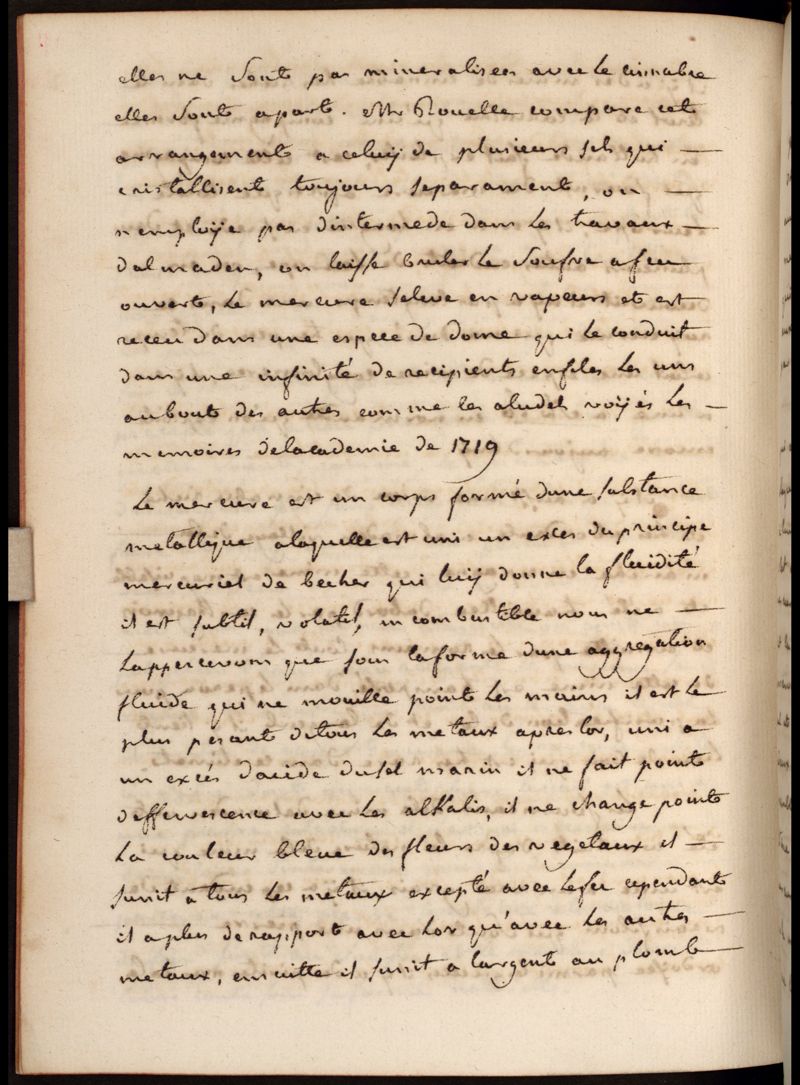 elles ne sont pas mineralisees avec le cinnabre
elles sont apart. Mr Rouelle compare cet
arrangement a celuy de plusieurs sels qui —
cristallisent toujours separament, on —
n'employe pas dintermede dans les travaux —
dalmaden, on laisse bruler le soufre a feu
ouvert, le mercure seleve en vapeurs et est
receu dans une espece de dome qui le conduit
dans une infinité de recipients enfiles les uns
au bout des autres comme les aludels voyés les —
memoires delacademie de 1719
Le mercure est un corps formé dune substance
metallique alaquelle est uni un exces du principe
mercuriel de becher qui luy donne la fluidité
il est subtil, volatil, incombustible nous ne —
Lappercevons que sous la forme dune aggregation
fluide qui ne mouille point les mains il est le
plus pesant de tous les metaux apres lor, uni a
un excés dacide du sel marin il ne fait point
deffervescence avec les alkalis, il ne change point
la couleur bleue des fleurs des vegetaux il —
sunit a tous les metaux excepté avec le fer cependant
il a plus de rapport avec lor qu'avec les autres —
metaux, ensuitte il sunit a largent au plomb —